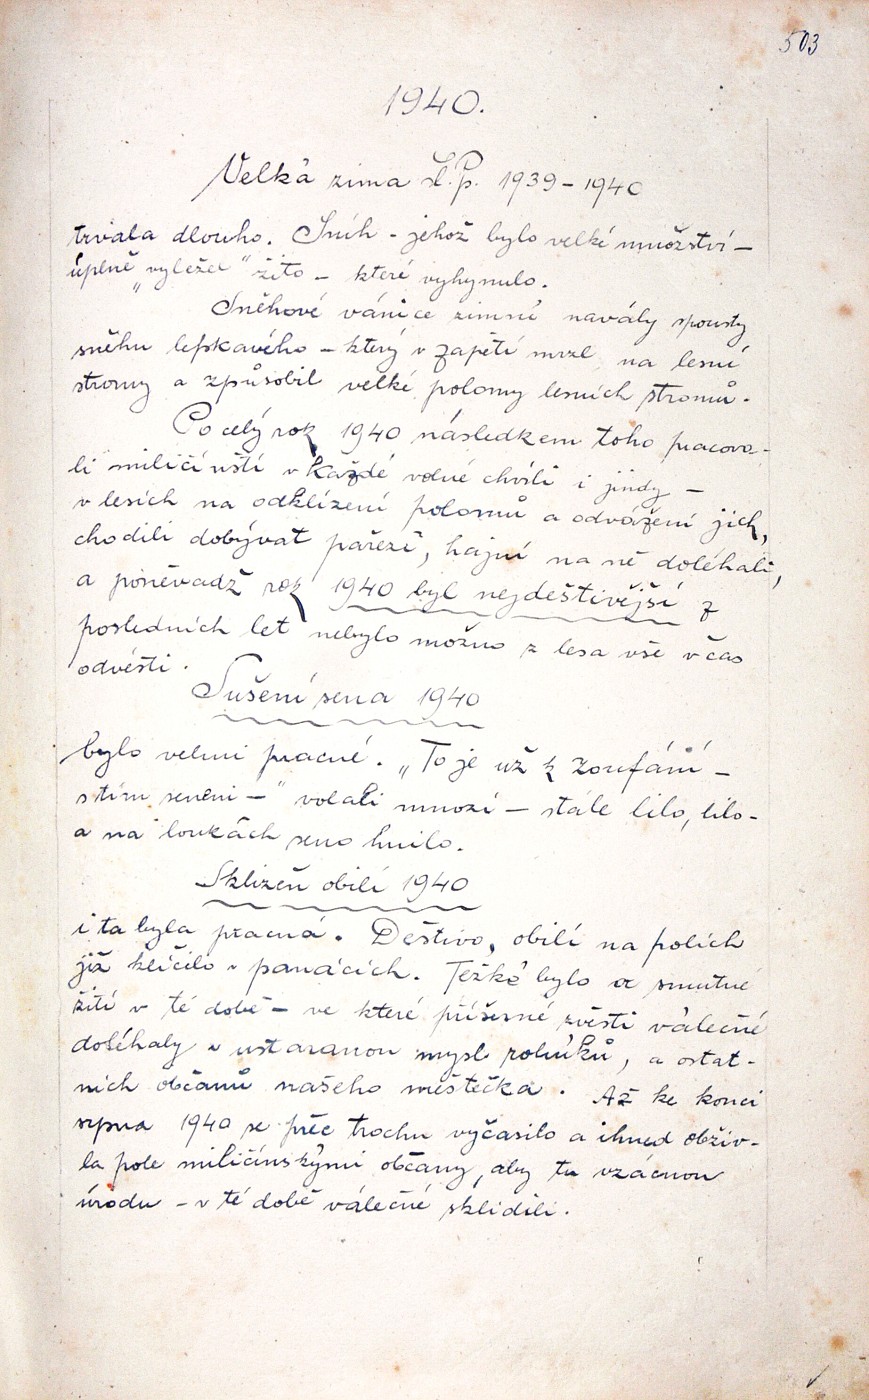 503
1940.
Velká zima L.P. 1939 – 1940
trvala dlouho. Sníh - jehož bylo velké množství –
úplně „vyležel“ žito – které vyhynulo.
Sněhové vánice zimní navály spousty
sněhu lepkavého – který v zápětí mrzl na lesní
stromy a způsobil velké polomy lesních stromů.
Po celý rok 1940 následkem toho pracova-
li miličínští v každé volné chvíli i jindy –
v lesích na odklízení polomů a odvážení jich,
chodili dobývat pařezí, hajní na ně doléhali,
a poněvadž rok 1940 byl nejdeštivější z
posledních let nebylo možno z lesa vše včas
odvésti.
Sušení sena 1940
bylo velmi pracné. „To je už k zoufání –
s tím senem –“ volali mnozí – stále lilo, lilo -
a na loukách seno hnilo.
Sklizeň obilí 1940
i ta byla pracná. Deštivo, obilí na polích
již klíčilo v panácích. Těžké bylo a smutné
žití v té době – ve které příšerné zvěsti válečné
doléhaly v ustaranou mysl rolníků, a ostat-
ních občanů našeho městečka. Až ke konci
srpna 1940 se přec trochu vyčasilo a ihned obživ-
la pole miličínskými občany, aby tu vzácnou
úrodu – v té době válečné sklidili.